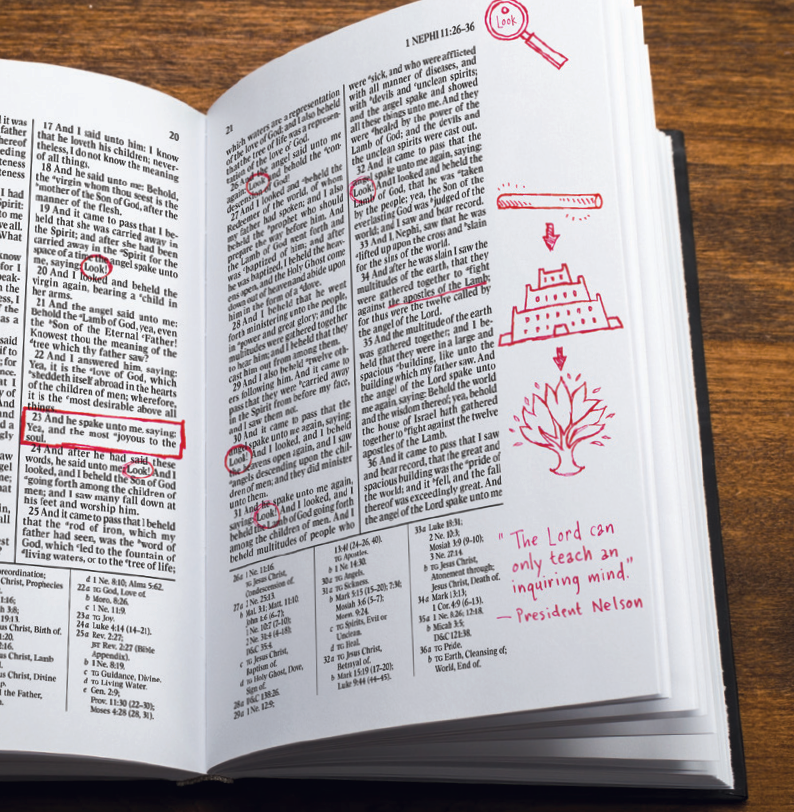 it was
father
hereof
eding
teness
teness
I had
Spirit:
to me
ve all.
What
know
for I
peak-
in the
ess, I
f the
as a
said
if to
; for
nce.
at I
y of
And
d a
gly
saw
gel
me;
hat
in,
all
20
17 And I said unto him: I know
that he loveth his children; never-
theless, I do not know the meaning
of all things.
18 And he said unto me: Behold,
the virgin whom thou seest is the
mother of the Son of God, after the
manner of the flesh.
19 And it came to pass that I be-
held that she was carried away in
the Spirit; and after she had been
carried away in the Spirit for the
space of a time the angel spake unto
me, saying: Look!
20 And I looked and beheld the
virgin again, bearing a child in
her arms.
21 And the angel said unto me:
Behold the Lamb of God, yea, even
the Son of the Eternal Father!
Knowest thou the meaning of the
tree which thy father saw?
22 And I answered him, saying:
Yea, it is the love of God, which
sheddeth itself abroad in the hearts
of the children of men; wherefore,
it is the most desirable above all
things.
23 And he spake unto me, saying:
Yea, and the most joyous to the
soul.
24 And after he had said these
words, he said unto me: Look! And I
looked, and I beheld the Son of God
going forth among the children of
men; and I saw many fall down at
his feet and worship him.
25 And it came to pass that I beheld
that the rod of iron, which my
father had seen, was the word of
God, which led to the fountain of
living waters, or to the tree of life;
d 1 Ne. 8:10; Alma 5:62.
22a TG God, Love of.
b Moro. 8:26.
c 1 Ne. 11:9.
23a TG Joy.
24a Luke 4:14 (14–21).
25a Rev. 2:27;
JST Rev. 2:27 (Bible
Appendix).
b 1 Ne. 8:19.
c TG Guidance, Divine.
d TG Living Water.
e Gen. 2:9;
Prov. 11:30 (22–30);
Moses 4:28 (28, 31).
21
1 NEPHI 11:26–36
which waters are a representation
of the love of God; and I also beheld
that the tree of life was a represen-
tation of the love of God.
26 And the angel said unto me
again: Look and behold the con-
descension of God!
27 And I looked and beheld the
Redeemer of the world, of whom
my father had spoken; and I also
beheld the prophet who should
prepare the way before him. And
the Lamb of God went forth and
was baptized of him; and after
he was baptized, I beheld the heav-
ens open, and the Holy Ghost come
down out of heaven and abide upon
him in the form of a dove.
28 And I beheld that he went
forth ministering unto the people,
in power and great glory; and the
multitudes were gathered together
to hear him; and I beheld that they
cast him out from among them.
29 And I also beheld twelve oth-
ers following him. And it came to
pass that they were carried away
in the Spirit from before my face,
and I saw them not.
30 And it came to pass that the
angel spake unto me again, saying:
Look! And I looked, and I beheld
the heavens open again, and I saw
angels descending upon the chil-
dren of men; and they did minister
unto them.
31 And he spake unto me again,
saying: Look! And I looked, and I
beheld the Lamb of God going forth
among the children of men. And I
beheld multitudes of people who
were sick, and who were afflicted
with all manner of diseases, and
with devils and unclean spirits;
and the angel spake and showed
all these things unto me. And they
were healed by the power of the
Lamb of God; and the devils and
the unclean spirits were cast out.
32 And it came to pass that the
angel spake unto me again, saying:
Look! And I looked and beheld the
Lamb of God, that he was taken
by the people; yea, the Son of the
everlasting God was judged of the
world; and I saw and bear record.
33 And I, Nephi, saw that he was
lifted up upon the cross and slain
for the sins of the world.
34 And after he was slain I saw the
multitudes of the earth, that they
were gathered together to fight
against the apostles of the Lamb;
for thus were the twelve called by
the angel of the Lord.
35 And the multitude of the earth
was gathered together; and I be-
held that they were in a large and
spacious building, like unto the
building which my father saw. And
the angel of the Lord spake unto
me again, saying: Behold the world
and the wisdom thereof; yea, behold
the house of Israel hath gathered
together to fight against the twelve
apostles of the Lamb.
36 And it came to pass that I saw
and bear record, that the great and
spacious building was the pride of
the world; and it fell, and the fall
thereof was exceedingly great. And
the angel of the Lord spake unto me
26a 1 Ne. 11:16.
TG Jesus Christ,
Condescension of.
27a 2 Ne. 25:13.
b Mal. 3:1; Matt. 11:10;
John 1:6 (6–7);
1 Ne. 10:7 (7–10);
2 Ne. 31:4 (4–18);
D&C 35:4.
c TG Jesus Christ,
Baptism of.
d TG Holy Ghost, Dove,
Sign of.
28a D&C 138:26.
29a 1 Ne. 12:9;
13:41 (24–26, 40).
TG Apostles.
b 1 Ne. 14:30.
30a TG Angels.
31a TG Sickness.
b Mark 5:15 (15–20); 7:30;
Mosiah 3:6 (5–7);
Morm. 9:24.
c TG Spirits, Evil or
Unclean.
d TG Heal.
32a TG Jesus Christ,
Betrayal of.
b Mark 15:19 (17–20);
Luke 9:44 (44–45).
33a Luke 18:31;
2 Ne. 10:3;
Mosiah 3:9 (9–10);
3 Ne. 27:14.
b TG Jesus Christ,
Atonement through;
Jesus Christ, Death of.
34a Mark 13:13;
1 Cor. 4:9 (6–13).
35a 1 Ne. 8:26; 12:18.
b Micah 3:5;
D&C 121:38.
36a TG Pride.
b TG Earth, Cleansing of;
World, End of.
Look
"The Lord can
only teach an
inquiring mind."
— President Nelson